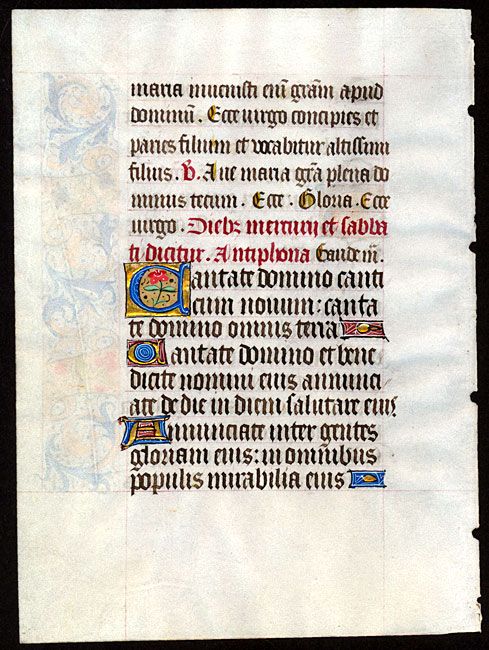 maria invenisti eni͂ gra͂m apud
dominu͂. Ecce virgo concipies et
paries filium et vocabitur altissimi
filius. V. Ave maria gr͂a plena do
minus tecum. Ecce. Gloria. Ecce
virgo. Dieb₉ mercurij et sabba
ti dicitur. Antiphona Gaude m͂.
Cantate domino canti
cum novum: canta
te domino omnis terra
Cantate domino et bene
dicite nomini eius annunci
ate de die in diem salutare eius
Annunciate inter gentes
gloriam eius: in omi͂bus
populis mirabilia eius